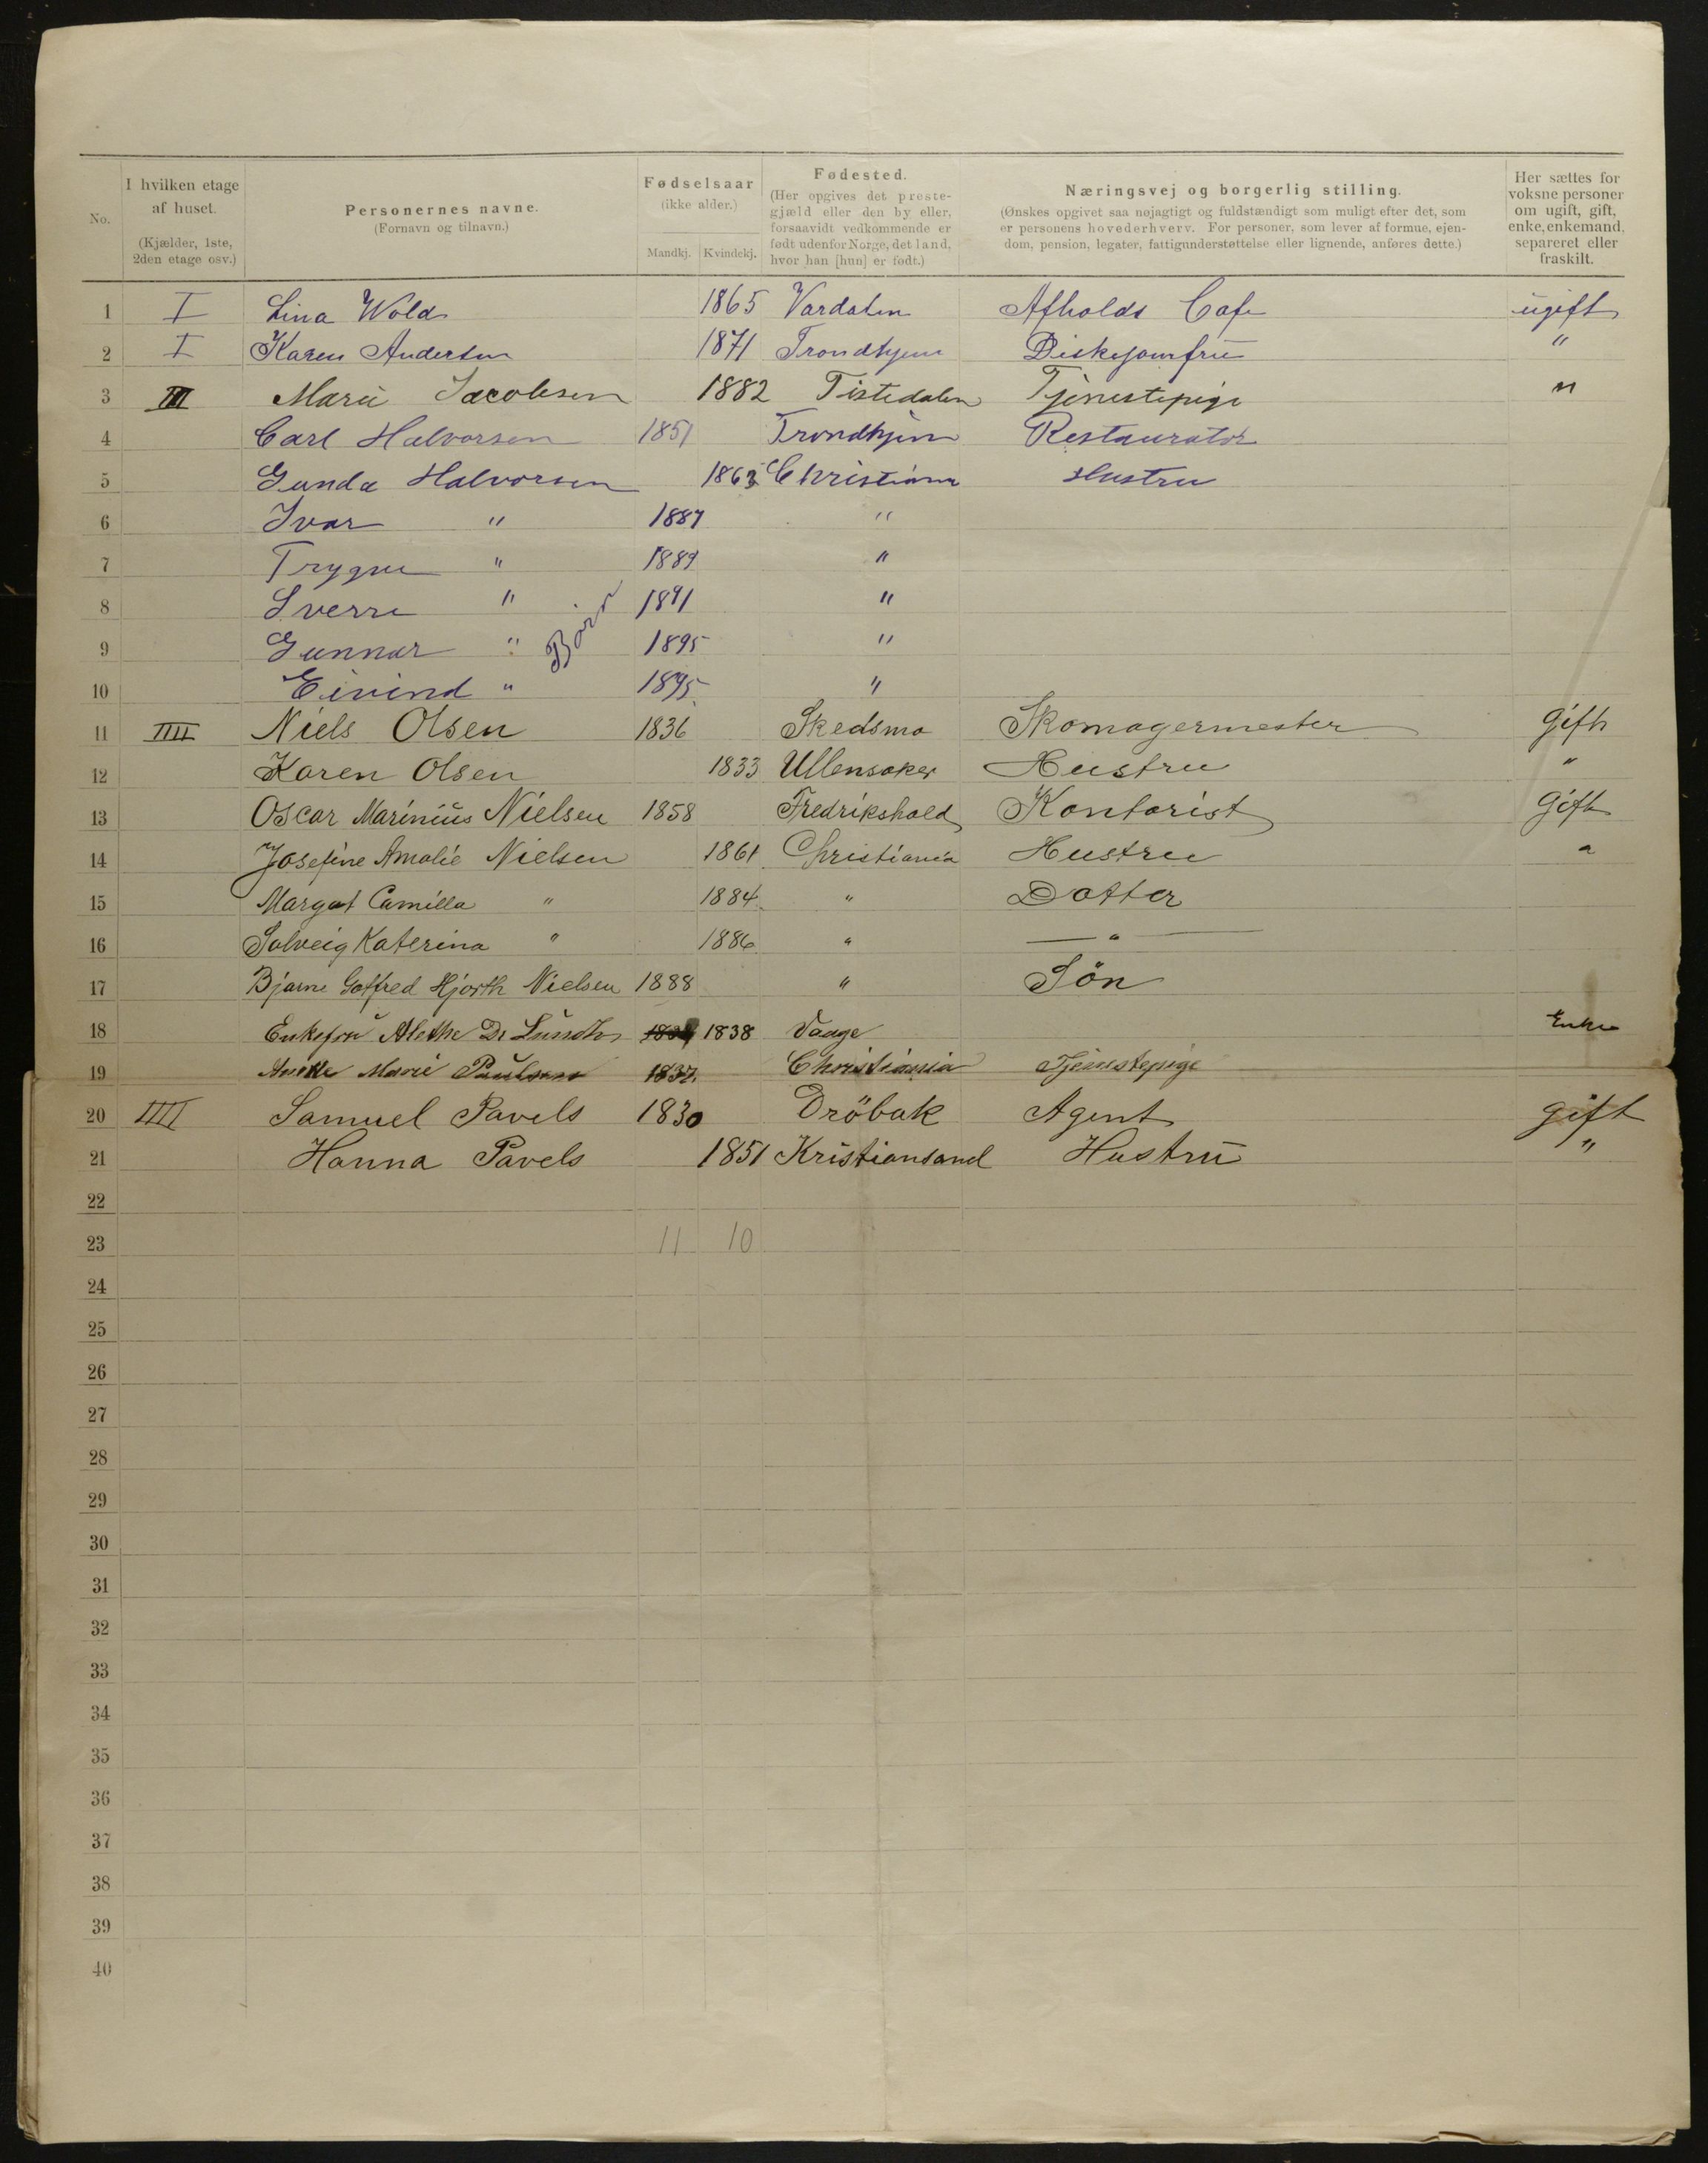 No.
I hvilken etage af huset. (Kjælder, 1ste, 2den etage osv.)
Personernes navne. (Fornavn og tilnavn.)
Fødselsaar (ikke alder.) Mandkj. Kvindekj.
Fødested. (Her opgives det prestegjæld eller den by eller, forsaavidt vedkommende er født udenfor Norge, det land, hvor han [hun] er født.)
Næringsvej og borgerlig stilling. (Ønskes opgivet saa nøjagtigt og fuldstændigt som muligt efter det, som er personens hovederhverv. For personer, som lever af formue, ejendom, pension, legater, fattigunderstøttelse eller lignende, anføres dette.)
Her sættes for voksne personer om ugift, gift, enke, enkemand, separeret eller fraskilt.
1 I Lina Wold 1865 Værdalen Afholds Cafe ugift
2 I Karen Andersen 1871 Trondhjem Diskejomfru "
3 III Marie Jacobsen 1882 Tistedalen Tjenestepige "
4 Carl Halvorsen 1851 Trondhjem Restauratør
5 Gunda Halvorsen Christiania Hustru
6 Ivar " 1887 "
7 Trygve " 1889 "
8 Sverre " Børn 1891 "
9 Gunnar " 1895 "
10 Eivind " 1895 "
11 IIII Niels Olsen 1836 Skedsmo Skomagermester Gift
12 Karen Olsen 1833 Ullensaker Hustru "
13 Oscar Marinius Nielsen 1858 Fredrikshald Kontorist Gift
14 Josefine Amalie Nielsen 1861 Christiania Hustru "
15 Margat Camilla " 1884 " Datter
16 Solveig Katerina " 1886 " — " —
17 Bjarne Gotfred Hjorth Nielsen 1888 " Sön
18 Enkefru Alethe De Lunds 1838 Vaage Enke
19 Marie Paulsen 1837. Christiania Tjenestepige
20 IIII Samuel Pavels 1830 Dröbak Agent gift
21 Hanna Pavels 1851 Kristiansand Hustru "
22
23 11 10
24
25
26
27
28
29
30
31
32
33
34
35
36
37
38
39
40